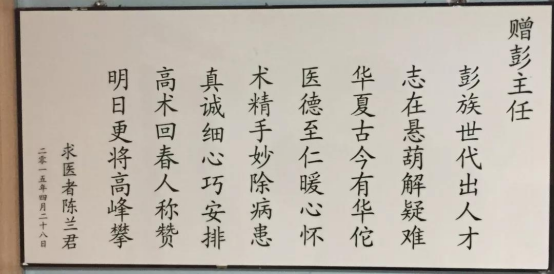 赠彭主任
彭族世代出人才
志在悬葫解疑难
华夏古今有华佗
医德至仁暖心怀
术精手妙除病患
真诚细心巧安排
高术回春人称赞
明日更将高峰攀
求医者陈兰君
二零一五年四月二十八日